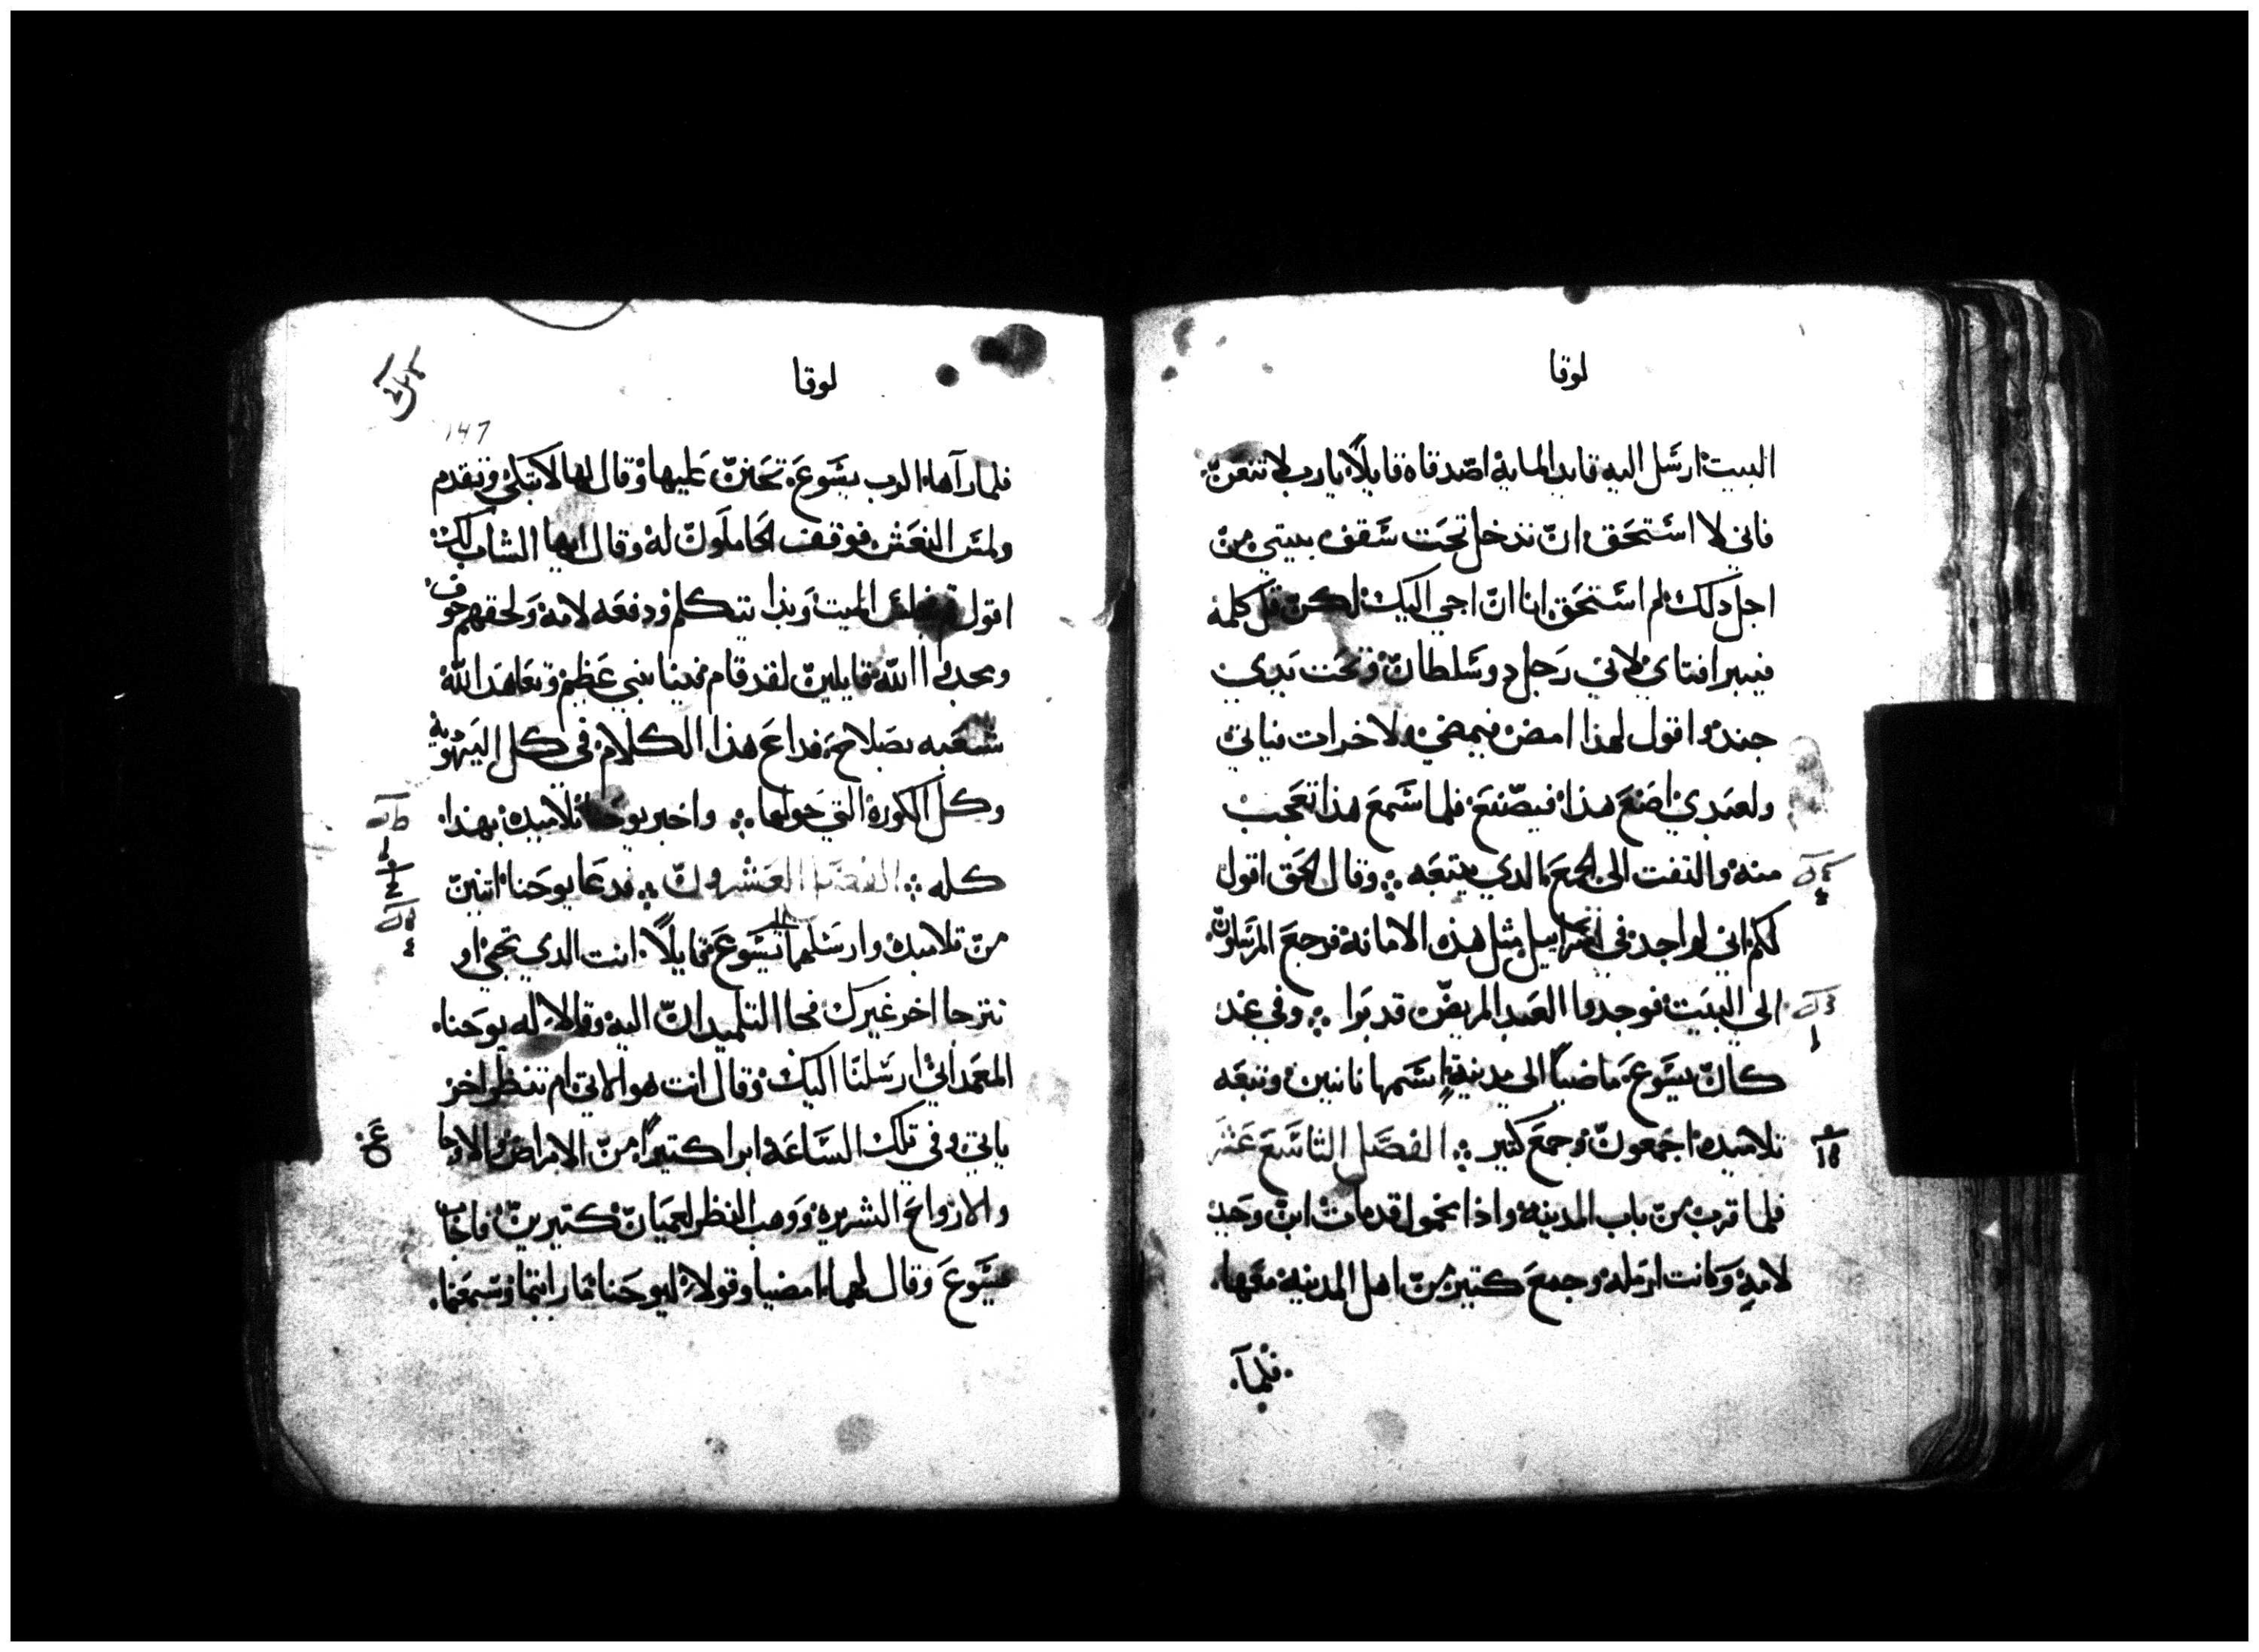 لوقا
البيت ارسل اليه قايد المايه اصدقاه قايلاً يارب لا تتعن
فاني لا استحق ان تدخل تحت سقف بيتي من
اجل دلك لم استحق انا ان اجي اليك لكن قل كلمة
فيبرا فتاي لاني رجل دو سلطان وتحت يدي
جند واقول لهذا امض فيمضي ولاخر ات فياتي
ولعبدي اصنع هذا فيصنع فلما سمع هذا تعجب
منه والتفت الى الجمع الدي يتبعه وقال الحق اقول
لكم اني لم اجد في اسراييل مثل هذه الامانه فرجع المرسلون
الي البيت فوجدوا العبد المريض قد برا وفي غد
كان يسوع ماضياً الى مدينة اسمها نايين وتبعه
تلاميده اجمعون وجمع كثير الفصل التاسع عشر
فلما قرب من باب المدينه واذا محمول قد مات ابن وحيد
لامه وكانت ارمله وجمع كتير من اهل المدينه معها
فلما
لوقا
147
فلما رآها الرب يسوع تحنن عليها وقال لها لا تبكي وتقدم
ولمس النعش فوقف الحاملون له وقال ايها الشاب لك
اقول قم فجلس الميت وبدا يتكلم ودفعه لامه ولحقهم خوف
ومجدوا الله قايلين لقد قام فينا نبي عظيم وتعاهد الله
شعبه بصلاح فداع هذا الكلام في كل اليهودية
وكل الكورة التي حولها واخبر يوحنا تلاميده بهذا
كله الفصل العشرون فدعا يوحنا اتنين
من تلاميده وارسلهما الى يسوع قايلاً انت الدي تجي او
نترجا اخر غيرك فجا التلميدان اليه وقالا له يوحنا
المعمداني ارسلنا اليك وقال انت هو الاتي ام ننتظر اخر
ياتي وفي تلك الساعة ابرا كتيراً من الامراض والاوجا
والارواح الشريره ووهب النظر لعميان كتيرين فاجاب
يسوع وقال لهما امضيا وقولا ليوحنا مارايتما وسمعتما